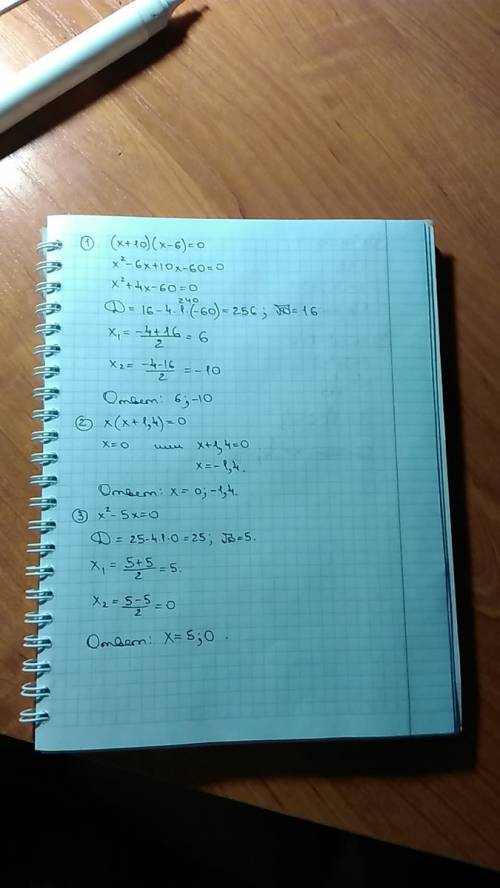 ① (x+10)(x-6)=0
x²-6x+10x-60=0
x²+4x-60=0
240
D = 16-4·1·(-60)=256; √D=16
x₁ = (-4+16)/2 = 6
x₂ = (-4-16)/2 = -10
Ответ: 6; -10
② x(x+1,4)=0
x=0 или x+1,4=0
x=-1,4.
Ответ: x=0; -1,4.
③ x²-5x=0
D = 25-4·1·0=25; √D=5.
x₁ = (5+5)/2 = 5.
x₂ = (5-5)/2 = 0
Ответ: x=5; 0.